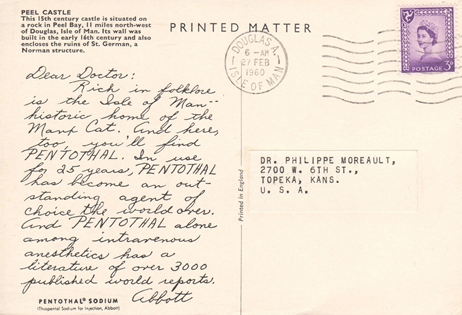 PEEL CASTLE
This 15th century castle is situated on
a rock in Peel Bay, 11 miles north-west
of Douglas, Isle of Man. Its wall was
built in the early 16th century and also
encloses the ruins of St. German, a
Norman structure.
PRINTED MATTER
DOUGLAS A
6 - AM
27 FEB
1960
ISLE OF MAN
POSTAGE
3D
Dear Doctor:
Rich in folklore
is the Isle of Man--
historic home of the
Manx Cat. And here,
too, you'll find
PENTOTHAL. In use
for 25 years, PENTOTHAL
has become an out-
standing agent of
choice the world over.
And PENTOTHAL alone
among intravenous
anesthetics has a
literature of over 3000
published world reports.
Abbott
PENTOTHAL® SODIUM
(Thiopental Sodium for Injection, Abbott)
Printed in England
DR. PHILIPPE MOREAULT,
2700 W. 6TH ST.,
TOPEKA, KANS.
U. S. A.